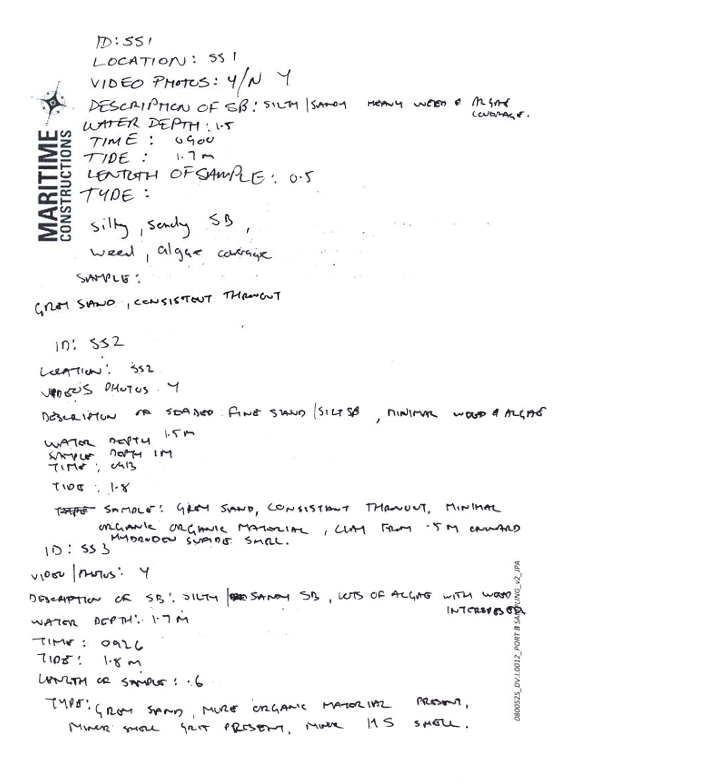 ID: SS1
LOCATION: SS1
VIDEO PHOTOS: Y/N Y
DESCRIPTION OF SB: SILTY/SANDY HEAVY WEED & ALGAE
COVERAGE.
WATER DEPTH: 1.5
TIME: 0900
TIDE: 1.7m
LENGTH OF SAMPLE: 0.5
TYPE:
silty, sandy SB,
weed, algae coverage
SAMPLE:
GREY SAND, CONSISTENT THROUOUT
MARITIME
CONSTRUCTIONS
ID: SS2
LOCATION: SS2
VIDEOS PHOTOS Y
DESCRIPTION OF SEABED: FINE SAND/SILT SB, MINIMAL WEED & ALGAE
WATER DEPTH 1.5M
SAMPLE DEPTH 1M
TIME: 0913
TIDE: 1.8
SAMPLE: GREY SAND, CONSISTANT THROUOUT, MINIMAL
ORGANIC ORGANIC MATERIAL, CLAY FROM .5M ONWARD
HYDROGEN SULFIDE SMELL.
ID: SS3
VIDEO/PHOTOS: Y
DESCRIPTION OF SB: SILTY/SANDY SB, LOTS OF ALGAE WITH WEED
INTERSPERSED
WATER DEPTH: 1.7M
TIME: 0926
TIDE: 1.8M
LENGTH OF SAMPLE: .6
TYPE: GREY SAND, MORE ORGANIC MATERIAL PRESENT,
MINOR SHELL GRIT PRESENT, MINOR HS SMELL.
080052S_DV.L0012_PORT B SAMPLING_V2_IPA